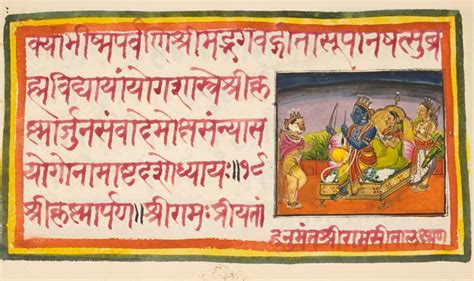 क्यांभीष्मपर्वणिश्रीमद्भगवद्गीतासूपनिषत्सुब्र
ह्मविद्यायांयोगशास्त्रेश्रीकृ
ष्णार्जुनसंवादेमोक्षसंन्यास
योगोनामाष्टादशोध्यायः॥१८
श्रीकृष्णार्पण॥श्रीरामःप्रीयतां
हनुमंतश्रीरामसीतालक्ष्मण